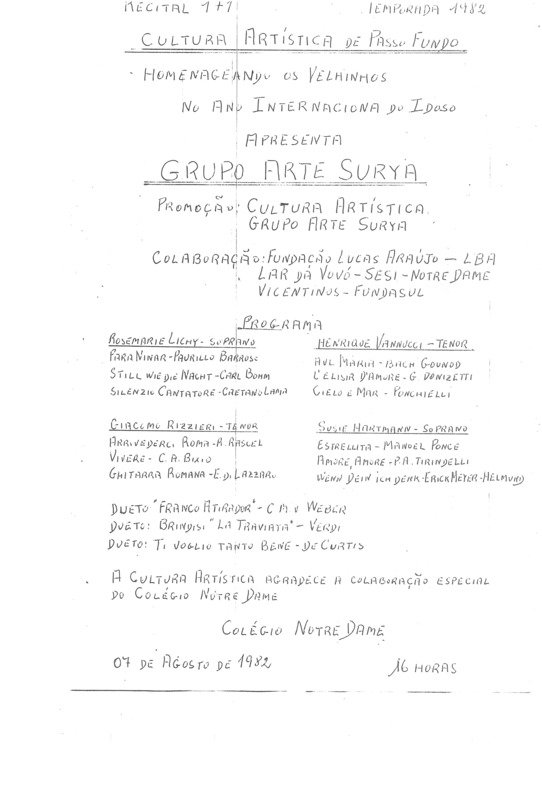 RECITAL 1+1 TEMPORADA 1982
CULTURA ARTÍSTICA DE PASSO FUNDO
HOMENAGEANDO OS VELHINHOS
NO ANO INTERNACIONA DO IDOSO
APRESENTA
GRUPO ARTE SURYA
PROMOÇÃO: CULTURA ARTÍSTICA
GRUPO ARTE SURYA
COLABORAÇÃO: FUNDACÃO LUCAS ARAÚJO - LBA
LAR DA VOVÓ - SESI - NOTRE DAME
VICENTINOS - FUNDASUL
PROGRAMA
ROSEMARIE LICHY - SOPRANO
PARA NINAR - PAURILLO BARROSO
STILL WIE DIE NACHT - CARL BOHM
SILENZIO CANTATORE - CAETANO LAMA
HENRIQUE VANNUCCI - TENOR
AVE MARIA - BACH GOUNOD
L'ELISIR D'AMORE - G DONIZETTI
CIELO E MAR - PONCHIELLI
GIACOMO RIZZIERI - TENOR
ARRIVEDERCI ROMA - R. RASCEL
VIVERE - C. A. BIXIO
GHITARRA ROMANA - E. D. LAZZARO
SUSIE HARTMANN - SOPRANO
ESTRELLITA - MANOEL PONCE
AMORE, AMORE - P.A. TIRINDELLI
WENN DEIN ICH DENK - ERICK MEYER - HELMUND
DUETO "FRANCO ATIRADOR" - C M. V WEBER
DUETO: BRINDISI "LA TRAVIATA" - VERDI
DUETO: TI VOGLIO TANTO BENE - DE CURTIS
A CULTURA ARTÍSTICA AGRADECE A COLABORAÇÃO ESPECIAL
DO COLÉGIO NOTRE DAME
COLÉGIO NOTRE DAME
07 DE AGOSTO DE 1982 16 HORAS